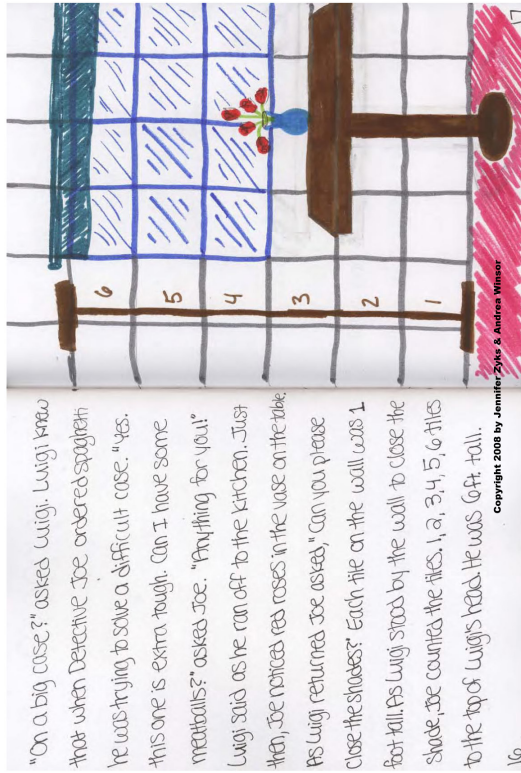 "On a big case?" asked Luigi. Luigi knew
that when Detective Joe ordered spaghetti
he was trying to solve a difficult case. "Yes.
this one is extra tough. Can I have some
meatballs?" asked Joe. "Anything for you!"
Luigi said as he ran off to the kitchen. Just
then, Joe noticed red roses in the vase on the table.
As Luigi returned Joe asked, "Can you please
close the shades?" Each tile on the wall was 1
foot tall. As Luigi stood by the wall to close the
shade, Joe counted the tiles. 1, 2, 3, 4, 5, 6 tiles
to the top of Luigi's head. He was 6 ft. tall.
16
6
5
4
3
2
1
17
Copyright 2008 by Jennifer Zyks & Andrea Winsor